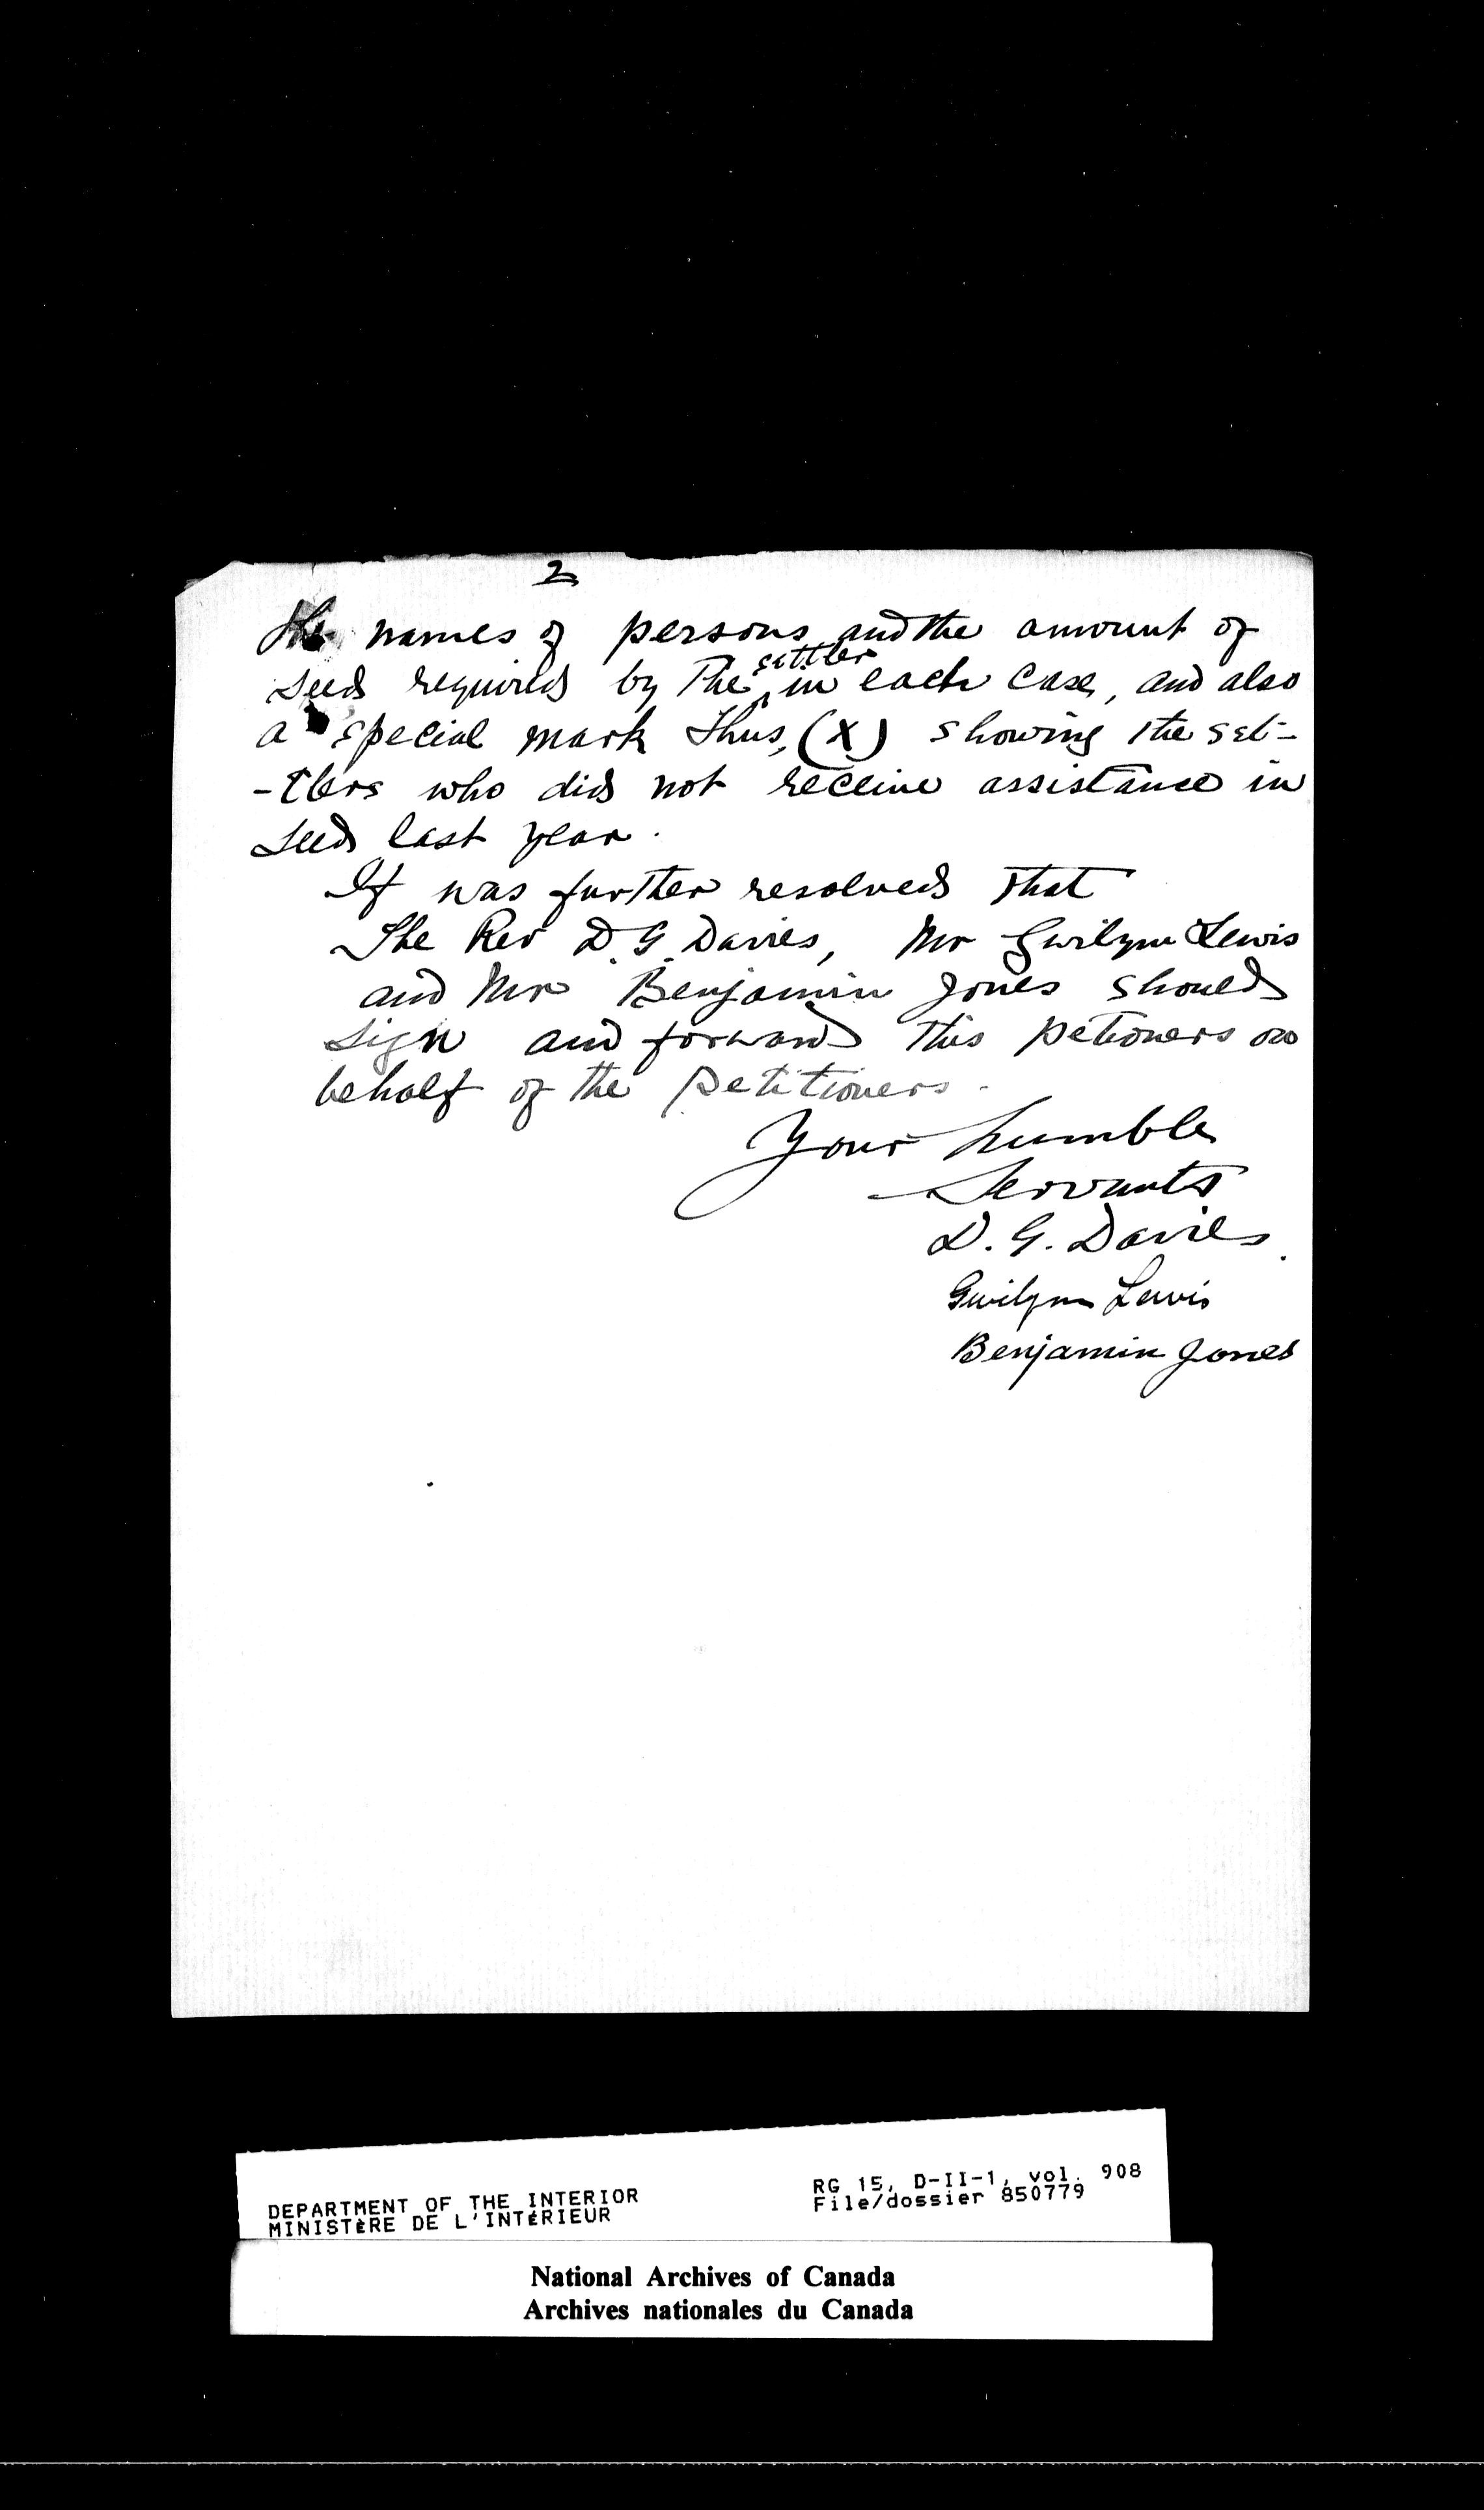 2
the names of persons and the amount of
settler
seed required by the ^ in each case, and also
a special mark thus, (X) showing the set-
-tlers who did not receive assistance in
seed last year.
It was further resolved that
The Rev D. G. Davies, Mr Gwilym Lewis
and Mr Benjamin Jones should
sign and forward this petioners on
behalf of the petitioners.
Your humble
Servants
D. G. Davies.
Gwilym Lewis
Benjamin Jones
DEPARTMENT OF THE INTERIOR
MINISTÈRE DE L'INTÉRIEUR
RG 15, D-II-1, vol. 908
File/dossier 850779
National Archives of Canada
Archives nationales du Canada